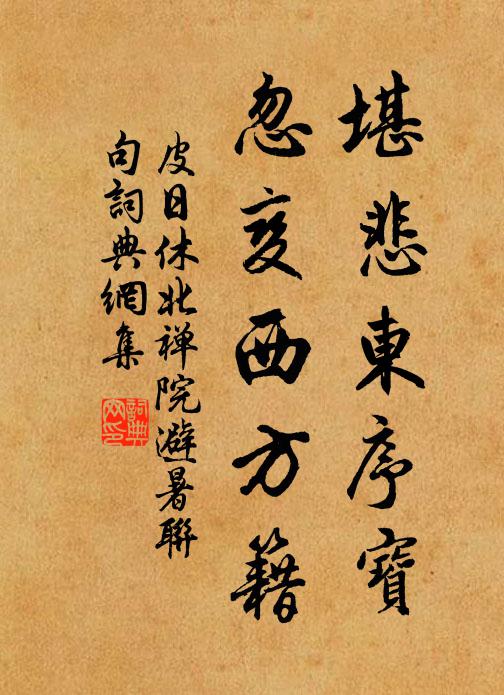 堪悲東序寶
忽变西方籍
皮日休北禅院避暑聯
句詞典網集
詞典
网印